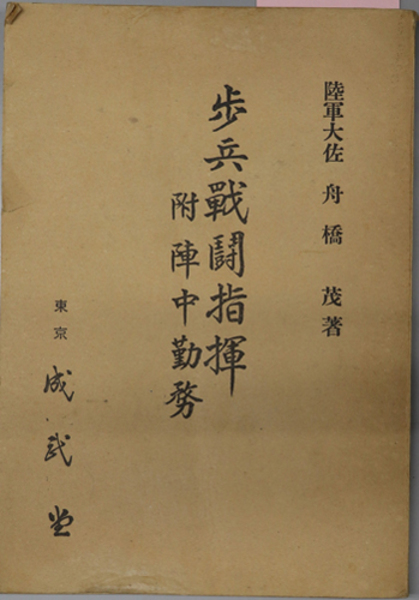 陸軍大佐 舟橋茂著
步兵戰鬪指揮
附陣中勤務
東京 成武堂